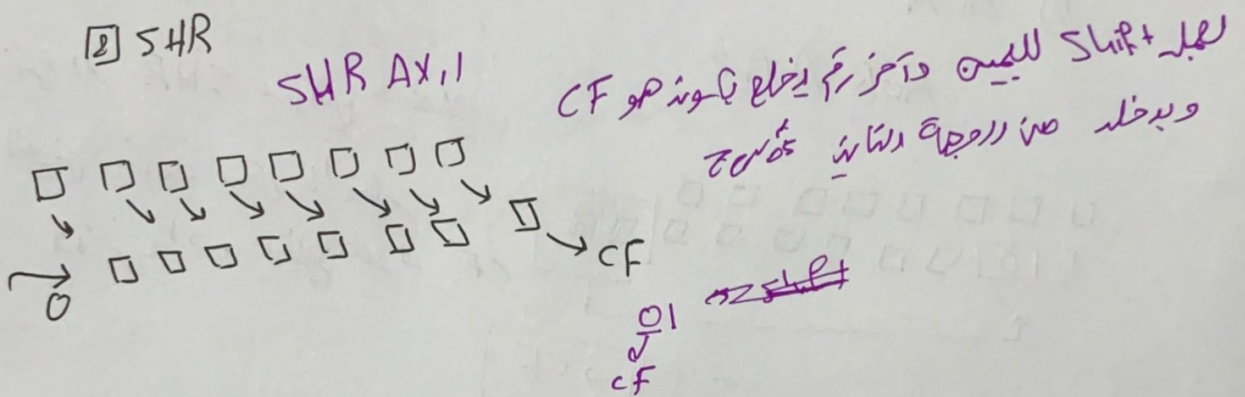 [2] SHR
SHR AX,1
بعمل Shift لليمين وآخر رقم يطلع بكون هو CF
وبدخل من الجهة الثانية
CF
0
01
CF